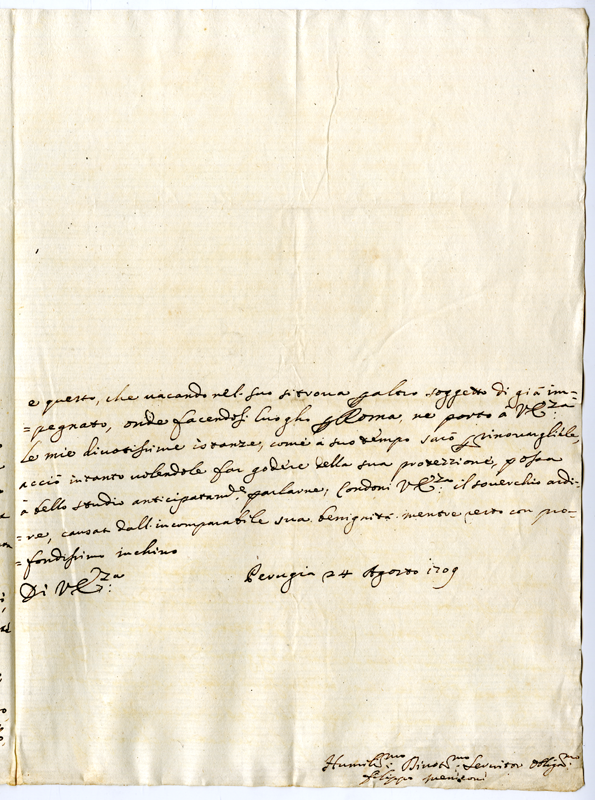 e questo, che uacando nel suo si troua p altro soggetto di già im-
=pegnato, onde facendosi luogho p Roma, ne porto à VE.za
le mie diuotissime istanze, come à suo tempo sarò p rinouargliele,
acciò intanto uolendole far godere della sua protezzione, possa
à bello studio anticipatam.e parlarne, Condoni VE.za il souerchio ardi-
=re, causato dall'incomparabile sua benignità mentre resto con pro-
=fondissimo inchino
Di VE.za
Perugia 24 Agosto 1709
Humiliss.mo Diuot.mo Seruitor Obblig.mo
Filippo